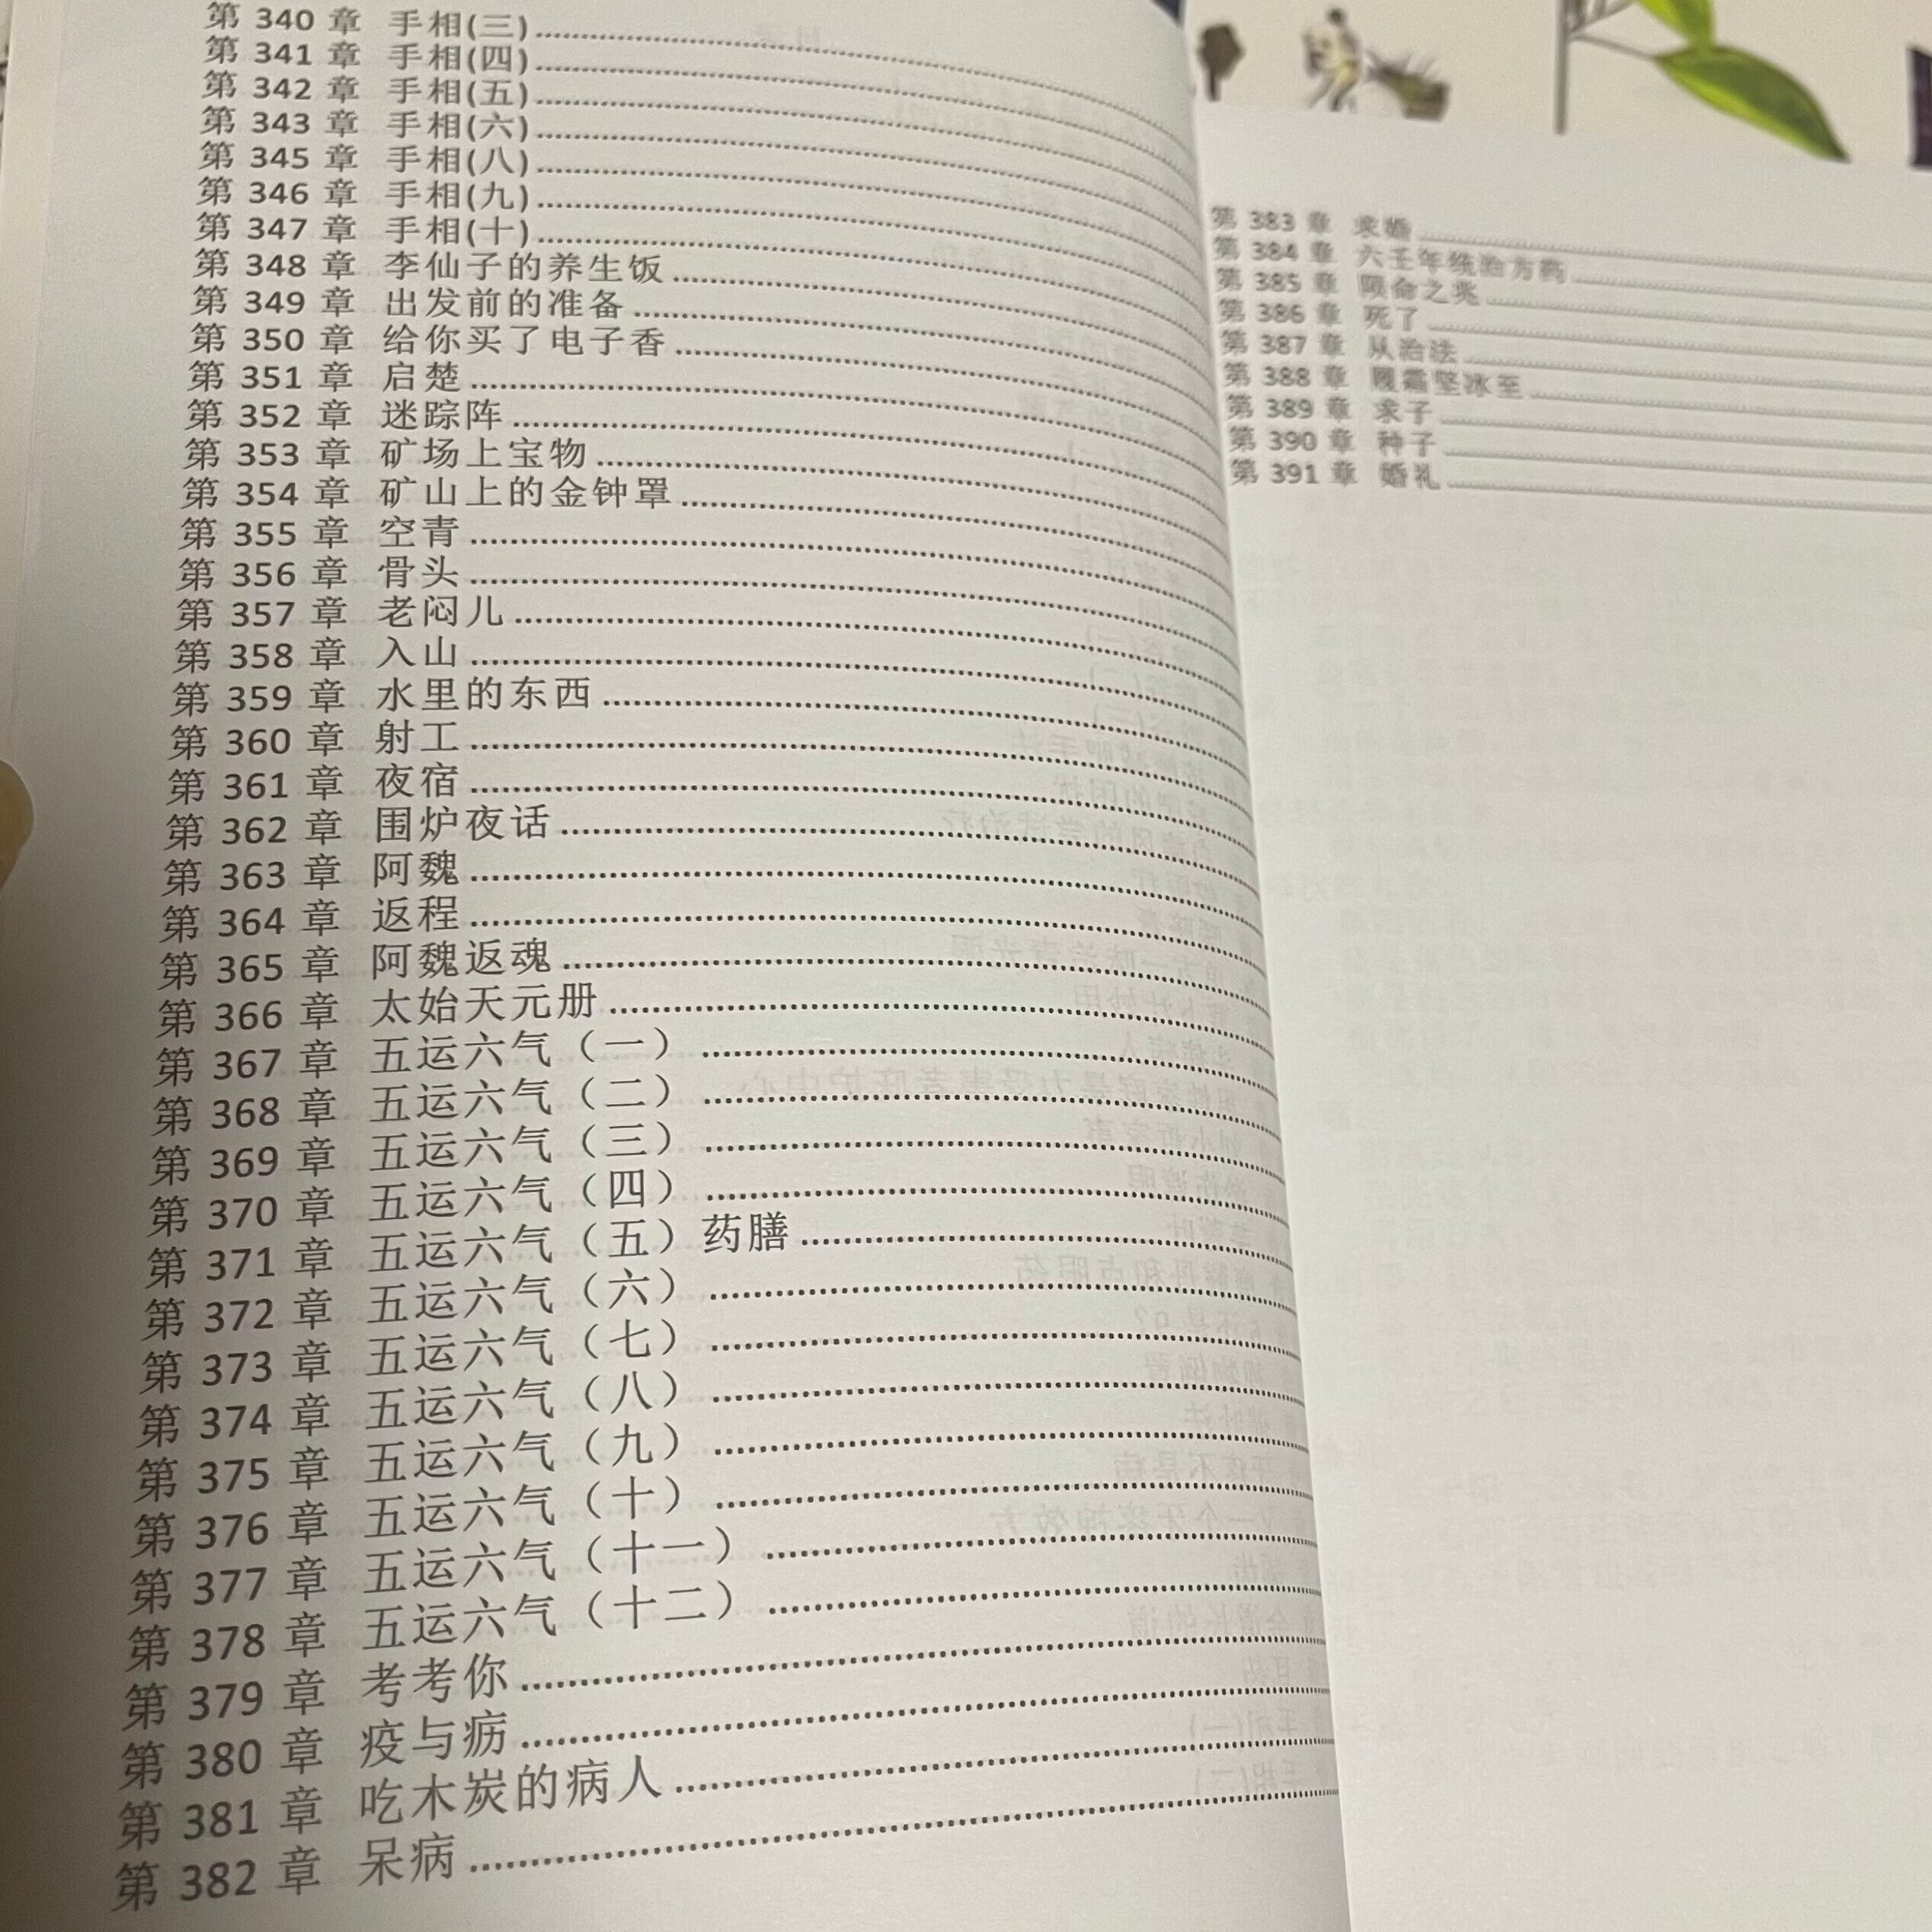 第 340 章 手相(三)
第 341 章 手相(四)
第 342 章 手相(五)
第 343 章 手相(六)
第 345 章 手相(八)
第 346 章 手相(九)
第 347 章 手相(十)
第 348 章 李仙子的养生饭
第 349 章 出发前的准备
第 350 章 给你买了电子香
第 351 章 启楚
第 352 章 迷踪阵
第 353 章 矿场上宝物
第 354 章 矿山上的金钟罩
第 355 章 空青
第 356 章 骨头
第 357 章 老闷儿
第 358 章 入山
第 359 章 水里的东西
第 360 章 射工
第 361 章 夜宿
第 362 章 围炉夜话
第 363 章 阿魏
第 364 章 返程
第 365 章 阿魏返魂
第 366 章 太始天元册
第 367 章 五运六气（一）
第 368 章 五运六气（二）
第 369 章 五运六气（三）
第 370 章 五运六气（四）
第 371 章 五运六气（五）药膳
第 372 章 五运六气（六）
第 373 章 五运六气（七）
第 374 章 五运六气（八）
第 375 章 五运六气（九）
第 376 章 五运六气（十）
第 377 章 五运六气（十一）
第 378 章 五运六气（十二）
第 379 章 考考你
第 380 章 疫与疠
第 381 章 吃木炭的病人
第 382 章 呆病
第 383 章 求婚
第 384 章 六壬年统治方药
第 385 章 陨命之兆
第 386 章 死了
第 387 章 从治法
第 388 章 履霜坚冰至
第 389 章 求子
第 390 章 种子
第 391 章 婚礼